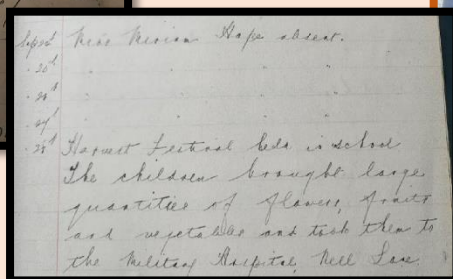 Miss Hope absent.
28th Harvest Festival held in school
The children brought large
quantities of flowers, fruits
and vegetables and took them to
the Military Hospital, Nell Lane.